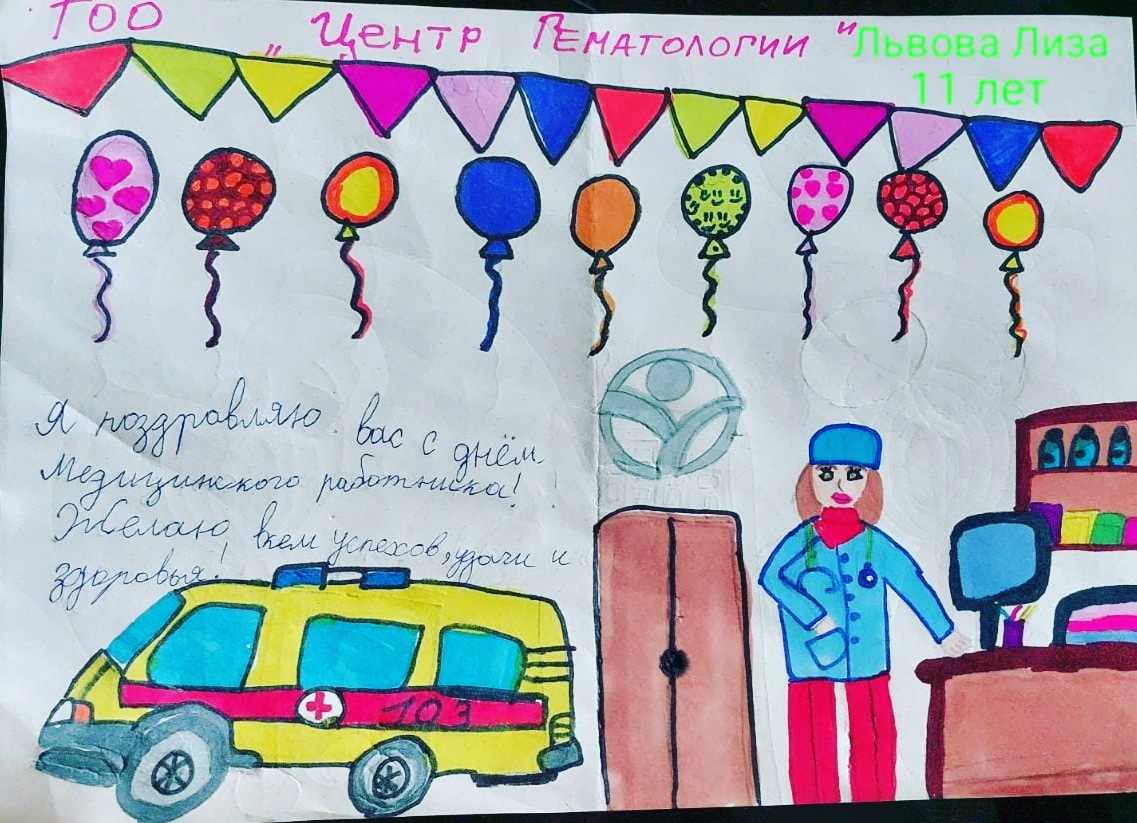 ТОО „Центр Гематологии"
Львова Лиза
11 лет
Я поздравляю вас с днём
Медицинского работника!
Желаю всем успехов, удачи и
здоровья!
103